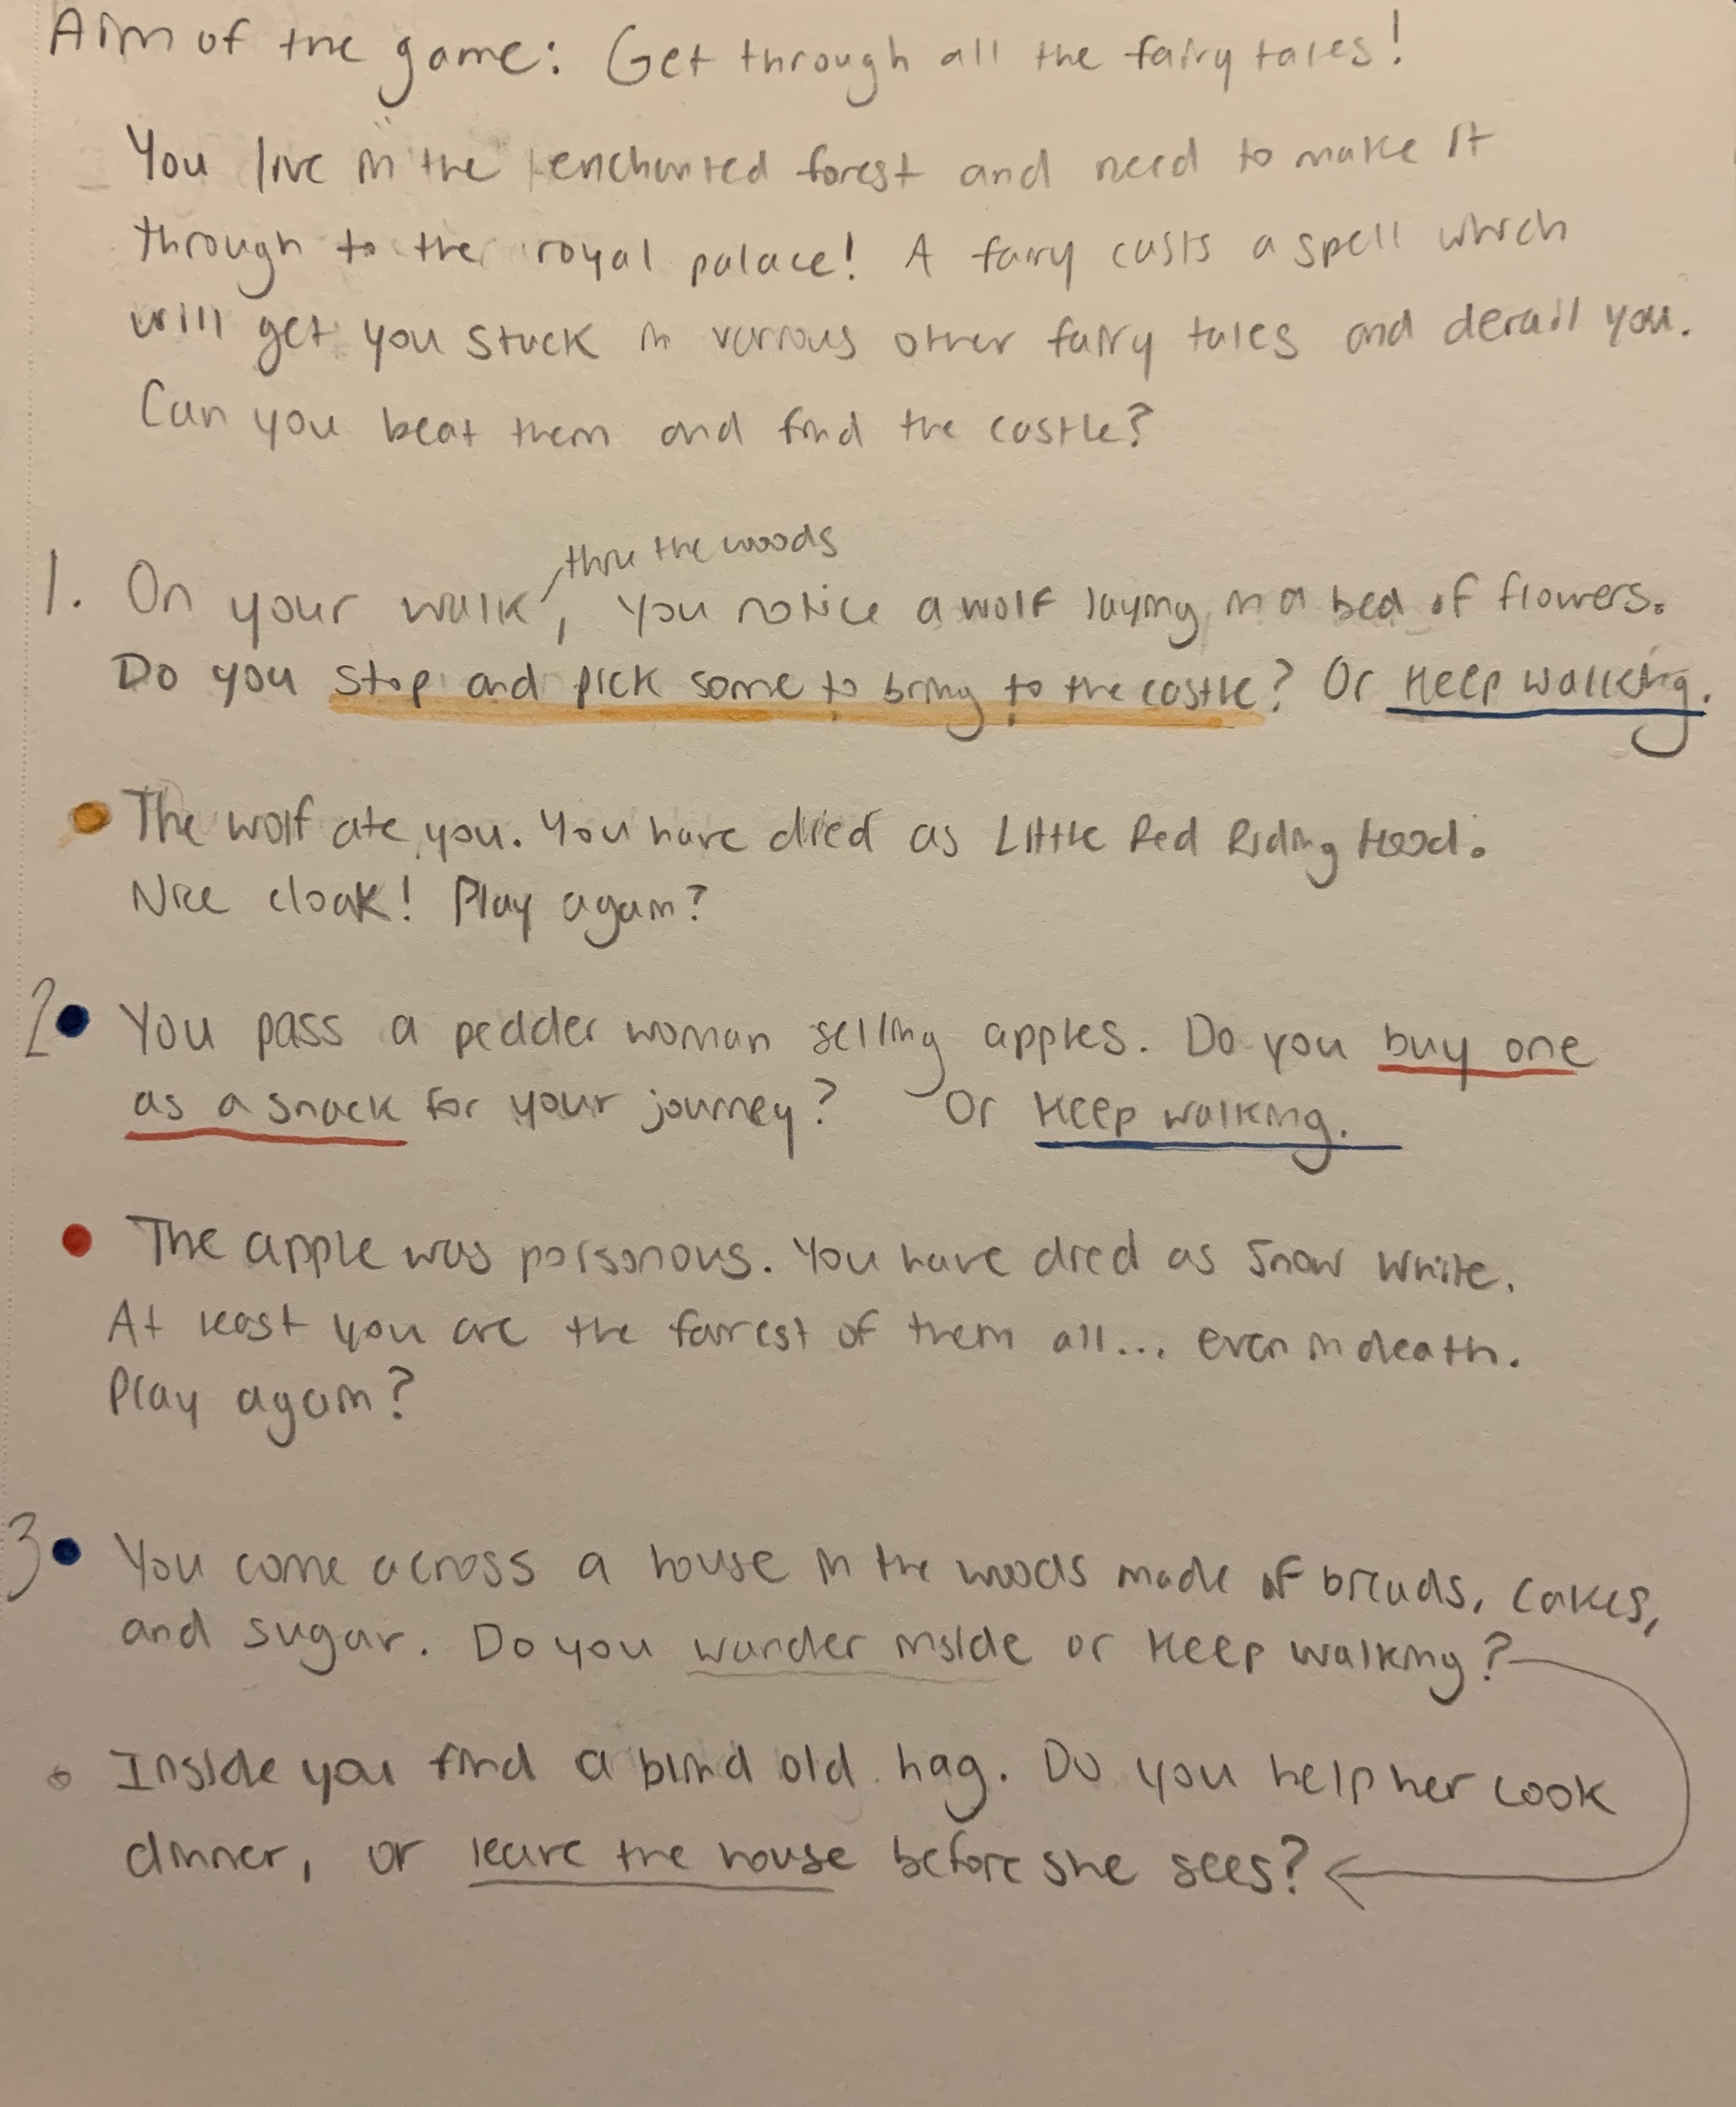 Aim of the game: Get through all the fairy tales!
You live in the enchanted forest and need to make it
through to the royal palace! A fairy casts a spell which
will get you stuck in various other fairy tales and derail you.
Can you beat them and find the castle?
thru the woods
1. On your walk, you notice a wolf laying in a bed of flowers.
Do you stop and pick some to bring to the castle? Or keep walking.
The wolf ate you. You have died as Little Red Riding Hood.
Nice cloak! Play again?
2 You pass a pedder woman selling apples. Do you buy one
as a snack for your journey? Or keep walking.
The apple was poisonous. You have died as Snow White.
At least you are the fairest of them all... even in death.
Play again?
3 You come across a house in the woods made of breads, cakes,
and sugar. Do you wander inside or keep walking?
Inside you find a blind old hag. Do you help her cook
dinner, or leave the house before she sees?